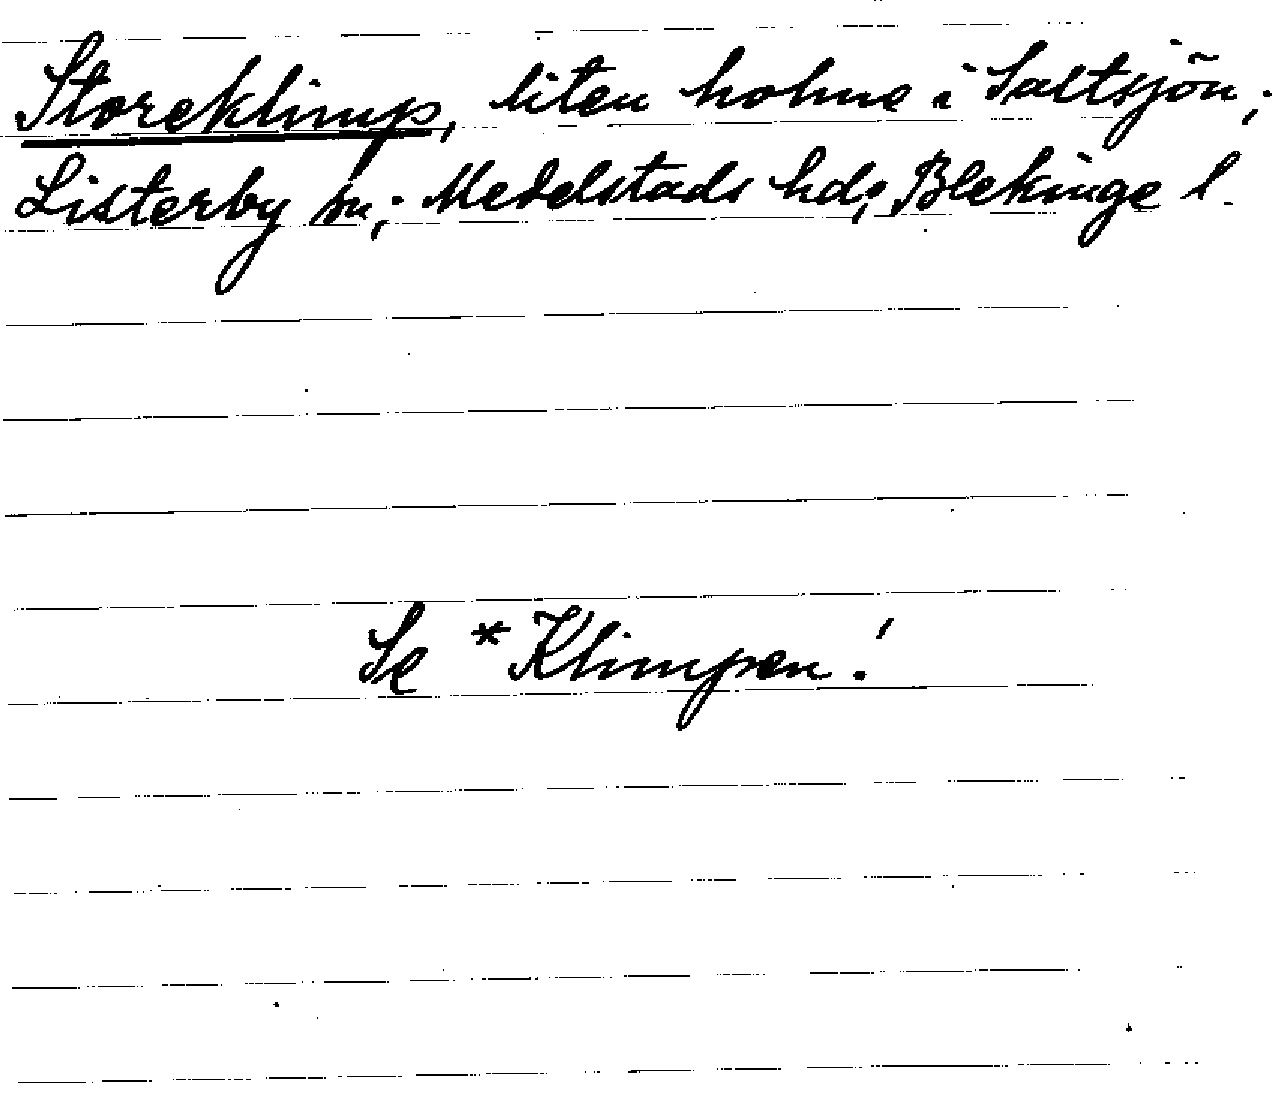 Storeklimp, liten holme i Saltsjön;
Listerby sn; Medelstads hd; Blekinge l.
Se *Klimpen!